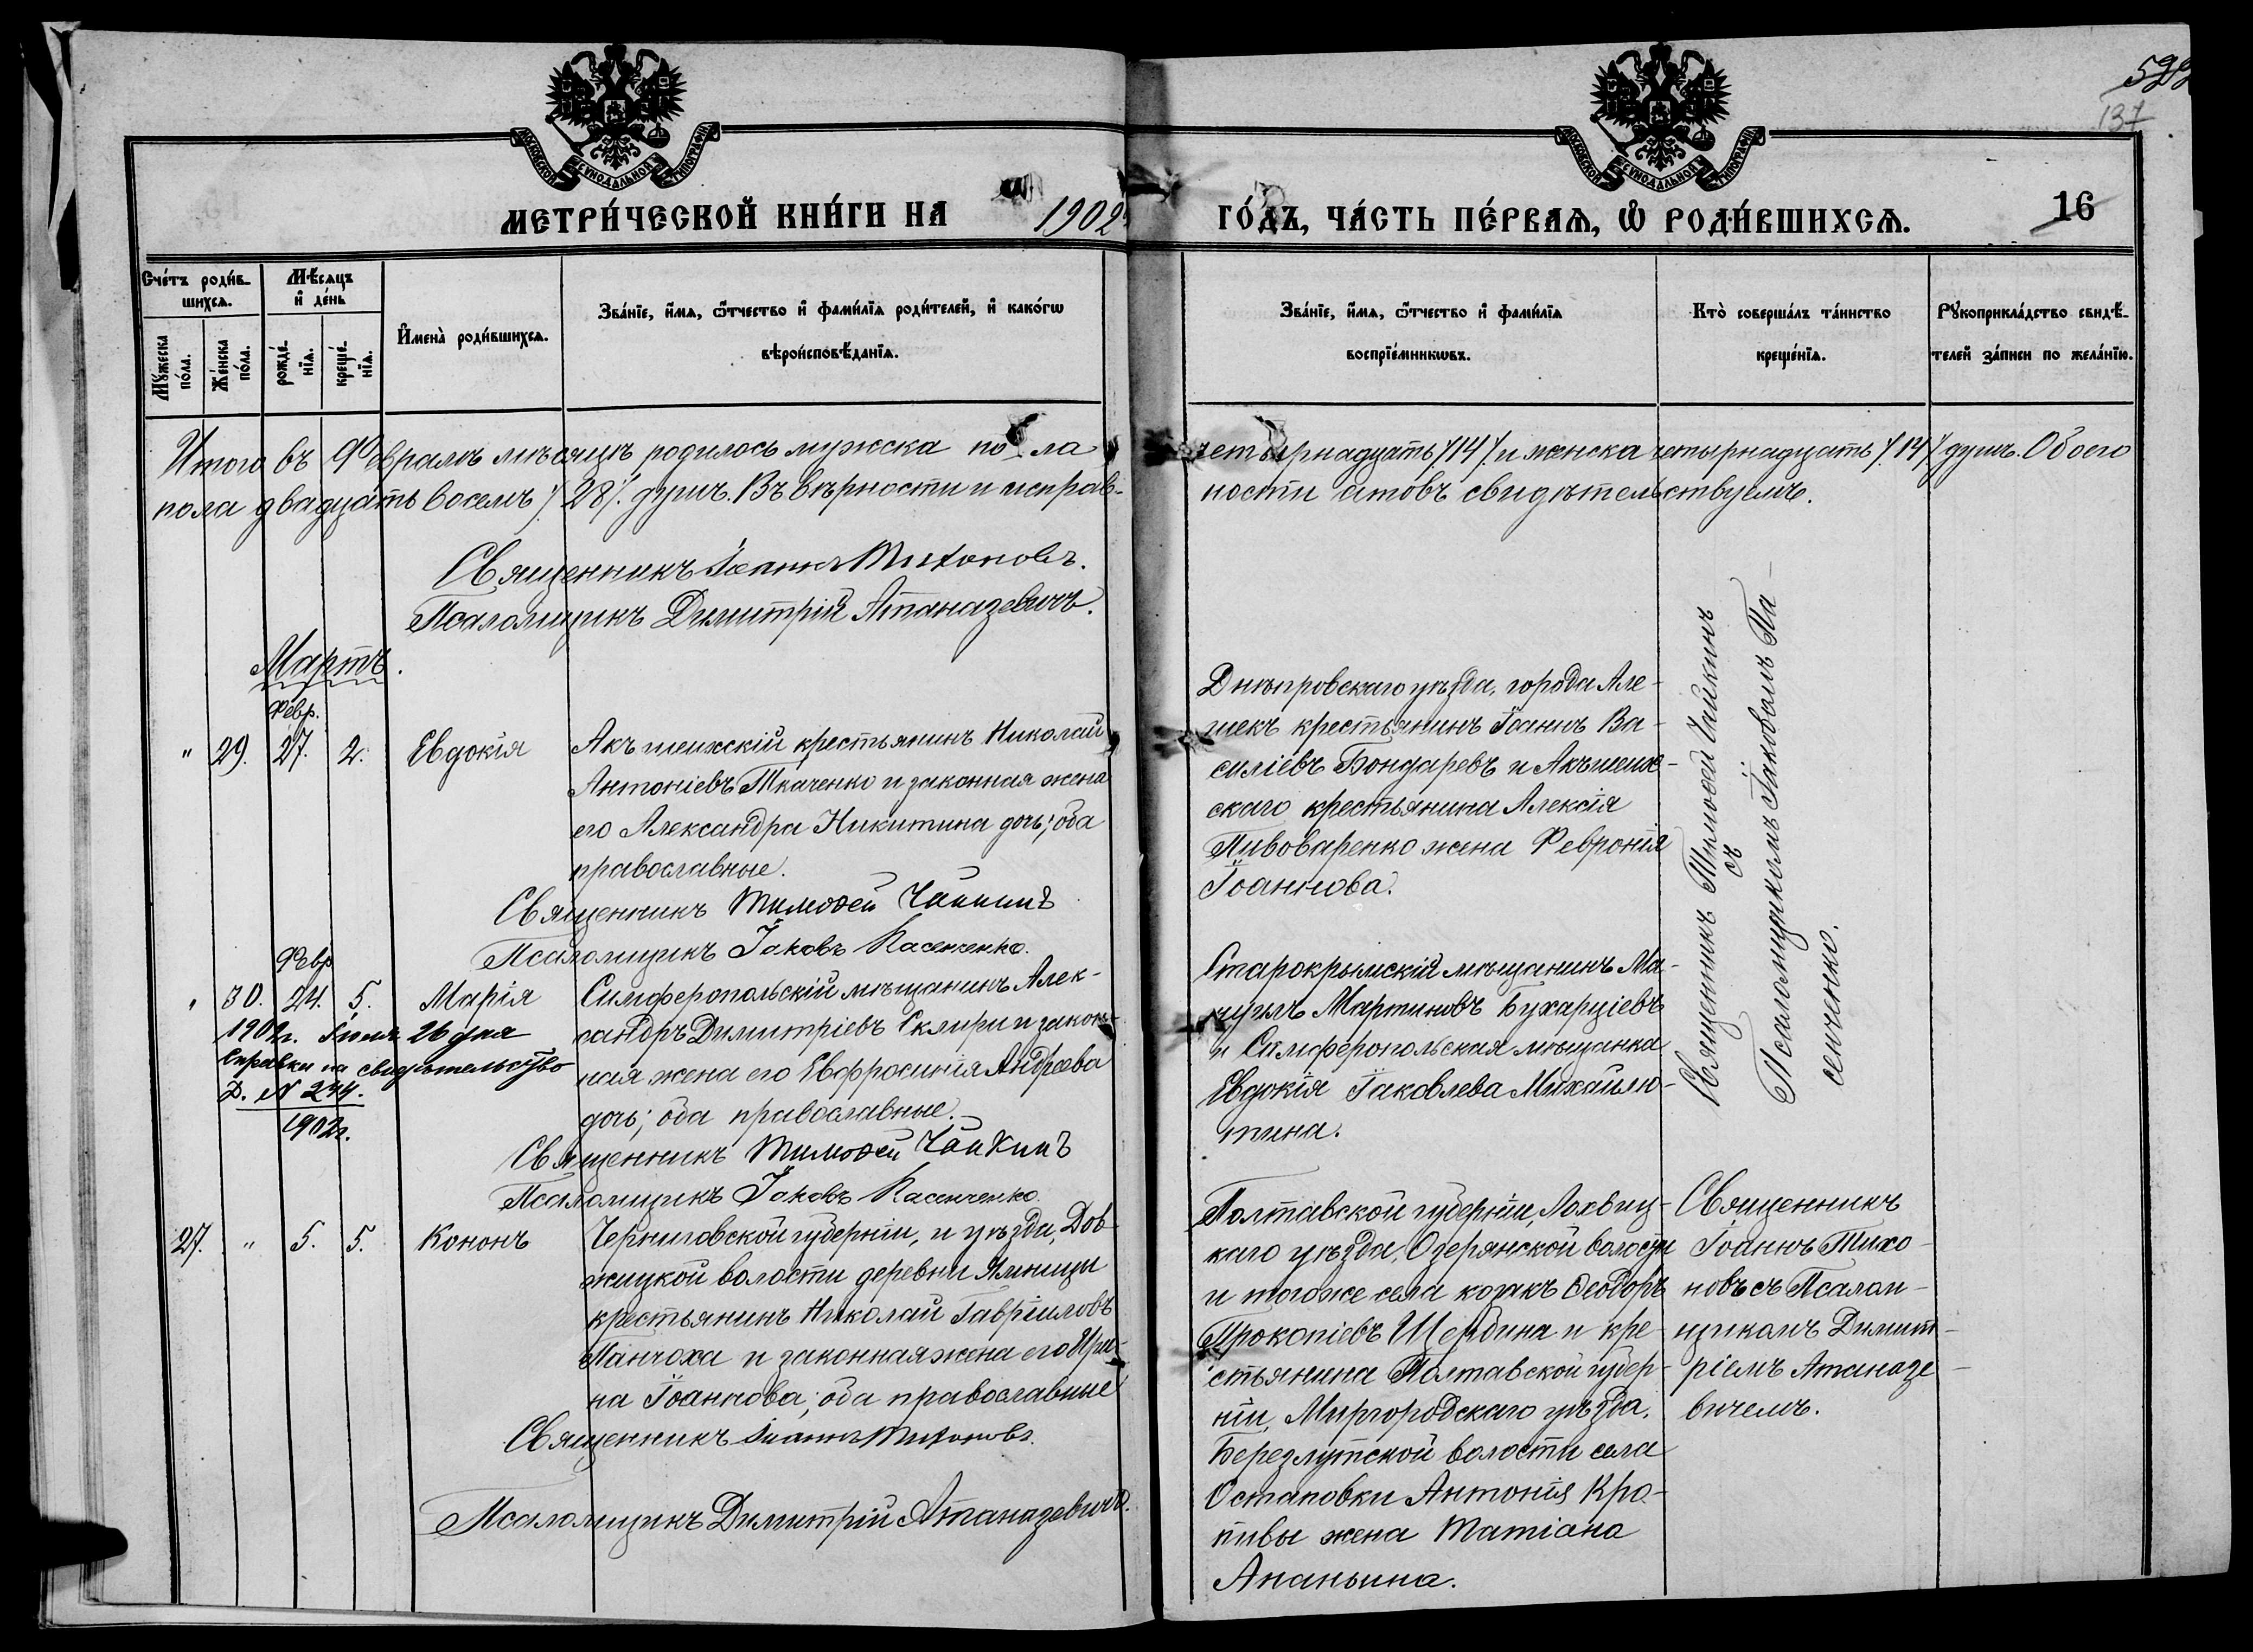 МОСКОВСКОЙ СѴНОДАЛЬНОЙ ТИПОГРАФІИ
МОСКОВСКОЙ СѴНОДАЛЬНОЙ ТИПОГРАФІИ
137
МЕТРИ́ЧЕСКОЙ КНИ́ГИ НА 1902
ГО́ДЪ, ЧА́СТЬ ПЕ́РВАѦ, Ѡ҆ РОДИ́ВШИХСѦ.
16
Счетъ роди́в-
шихсѧ.
Мꙋ́жеска
по́ла.
Же́нска
по́ла.
Мѣ́сѧцъ
и҆ де́нь
рожде́-
нїѧ.
креще́-
нїѧ.
И҆мена̀ роди́вшихсѧ.
Зва́нїе, и҆́мѧ, ѻ҆́тчество и҆ фами́лїѧ роди́телей, и҆ како́гѡ
вѣроисповѣ́данїѧ.
Зва́нїе, и҆́мѧ, ѻ҆́тчество и҆ фами́лїѧ
воспрїе́мникѡвъ.
Кто̀ соверша́лъ та́инство
креще́нїѧ.
Рꙋкоприкла́дство свидѣ́-
телей за́писи по жела́нїю.
Итого въ Февралѣ мѣсяцѣ родилось мужска пола
пола двадцать восемь /28/. душъ. Въ вѣрности и исправ-
четырнадцать /14/ и женска четырнадцать /14/ душъ. Обоего
ности актовъ свидѣтельствуемъ.
Священникъ Іоаннъ Тихоновъ.
Псаломщикъ Димитрій Атаназевичъ.
Мартъ.
Февр.
" 29. 27. 2. Евдокія
Акъ-шеихскій крестьянинъ Николай
Антоніевъ Ткаченко и законная жена
его Александра Никитина дочь; оба
православные.
Священникъ Тимоѳей Чайкинъ
Псаломщикъ Іаковъ Пасенченко.
Днѣпровскаго уѣзда, города Але-
шекъ крестьянинъ Іоаннъ Ва-
силіевъ Бондаревъ и Акъ-шеих-
скаго крестьянина Алексія
Пивоваренко жена Февронія
Іоаннова.
Священникъ Тимоѳей Чайкинъ
съ
Псаломщикомъ Іаковомъ Па-
сенченко.
Февр
" 30. 24. 5. Марія
1902 г. Іюня 26 дня
справки на свидѣтельство
Д. № 244.
1902 г.
Симферопольскій мѣщанинъ Алек-
сандръ Димитріевъ Склири и закон-
ная жена его Евфросинія Андреева
дочь; оба православные.
Священникъ Тимоѳей Чайкинъ
Псаломщикъ Іаковъ Пасенченко.
Старокрымскій мѣщанинъ Ма-
нуилъ Мартиновъ Бухарціевъ
и Симферопольская мѣщанка
Евдокія Іаковлева Михайлю-
тина.
27. " 5. 5. Кононъ
Черниговской губерніи, и уѣзда, Дов-
жицкой волости деревни Ямници
крестьянинъ Николай Гавріиловъ
Панчоха и законная жена его Ири-
на Іоаннова; оба православные
Священникъ Іоаннъ Тихоновъ.
Псаломщикъ Димитрій Атаназевичъ.
Полтавской губерніи, Лохвиц-
каго уѣзда, Озерянской волости
и тогоже села козакъ Ѳеодоръ
Прокопіевъ Щербина и кре-
стьянина Полтавской губер-
ніи, Миргородскаго уѣзда,
Березлутской волости села
Остаповки Антонія Кро-
пивы жена Татіана
Ананьина.
Священникъ
Іоаннъ Тихо-
новъ съ Псалом-
щикомъ Димит-
ріемъ Атаназе-
вичемъ.